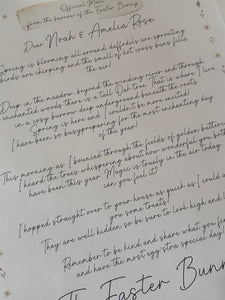 Official Mail
from the burrow of the Easter Bunny
Dear Noah & Amelia Rose
Spring is blooming all around daffodils are sprouting
birds are chirping and the smell of hot cross buns fills
the air!
Deep in the meadow beyond the winding river and through
enchanted woods there is a tall Oak tree. That is where I live
in a cosy burrow deep underground beneath the roots
Spring is here and I couldn't be more excited!
I have been so busy preparing for the most enchanting day
of the year!
This morning as I bounced through the fields of golden butterc
I heard the trees whispering about how wonderful you both
have been this year. Magic is truely in the air today
can you feel it
I hopped straight over to your house as quick as I could
you some treats!
They are well hidden so be sure to look high and l
Remember to be kind and share what you fi
and have the most egg stra special day
The Easter Bunn